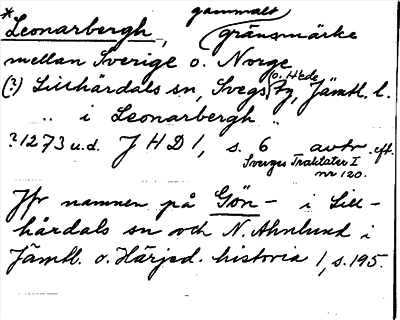 *Leonarbergh, gammalt
gränsmärke
mellan Sverige o. Norge
(?) Lillhärdals sn, Svegs o. Hede tg, Jämtl. l.
" i Leonarbergh "
?1273 u.d. JHD I, s. 6 avtr. eft.
Sverges Traktater I
nr 120.
Jfr namnen på Gön- i Lill-
härdals sn och N. Ahnlund i
Jämtl. o. Härjed. historia I, s. 195.